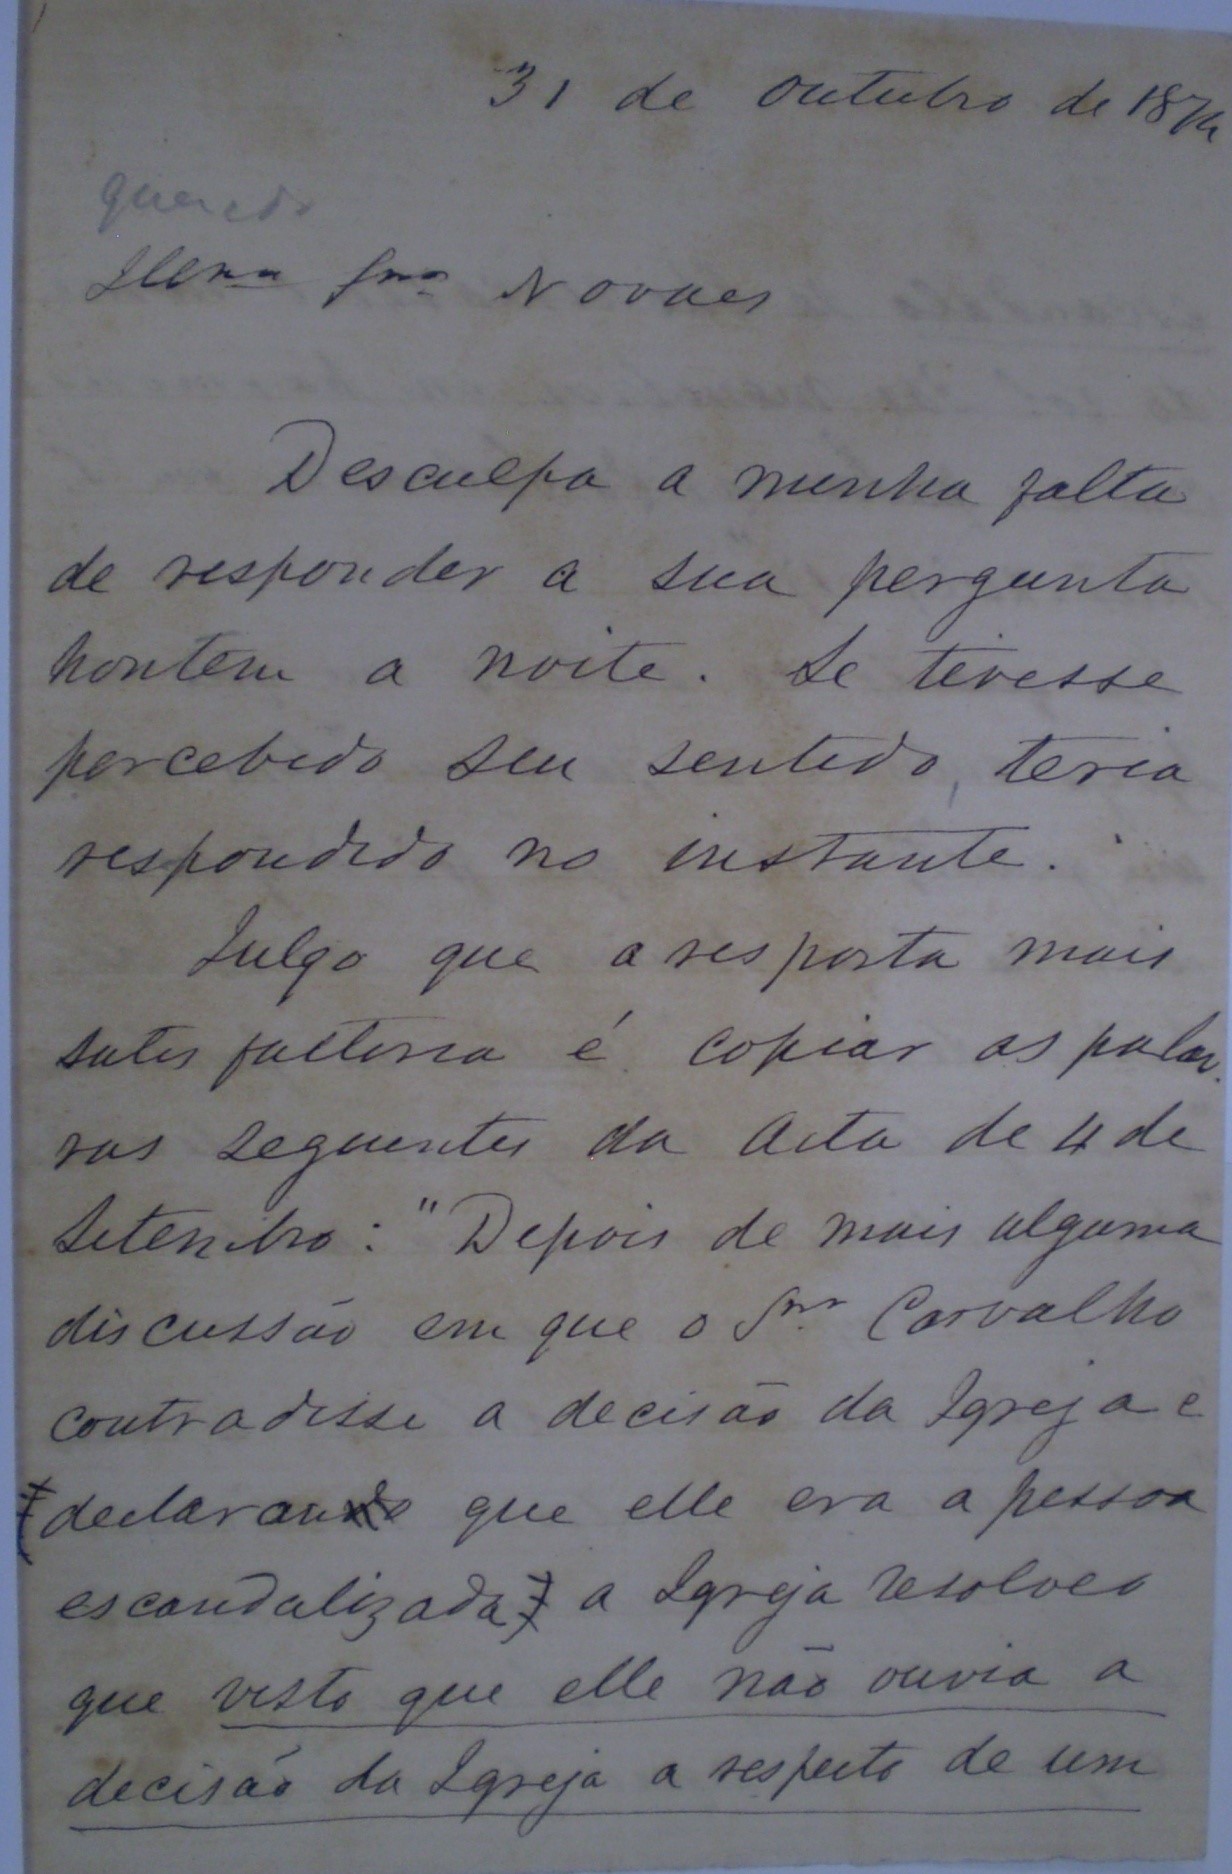 31 de outubro de 187
querido
Illmo Snro Novaes
Desculpa a minha falta
de responder a sua pergunta
hontem a noite. Se tivesse
percebido seu sentido, teria
respondido no instante.
Julgo que a resposta mais
satisfactoria é copiar as palav.
ras seguintes da Acta de 4 de
Setembro: "Depois de mais alguma
discussão em que o Snr. Carvalho
contradisse a decisão da Igreja e
declarando que elle era a pessoa
escandalizada, a Igreja resolveo
que visto que elle não ouvia a
decisão da Igreja a respeito de um